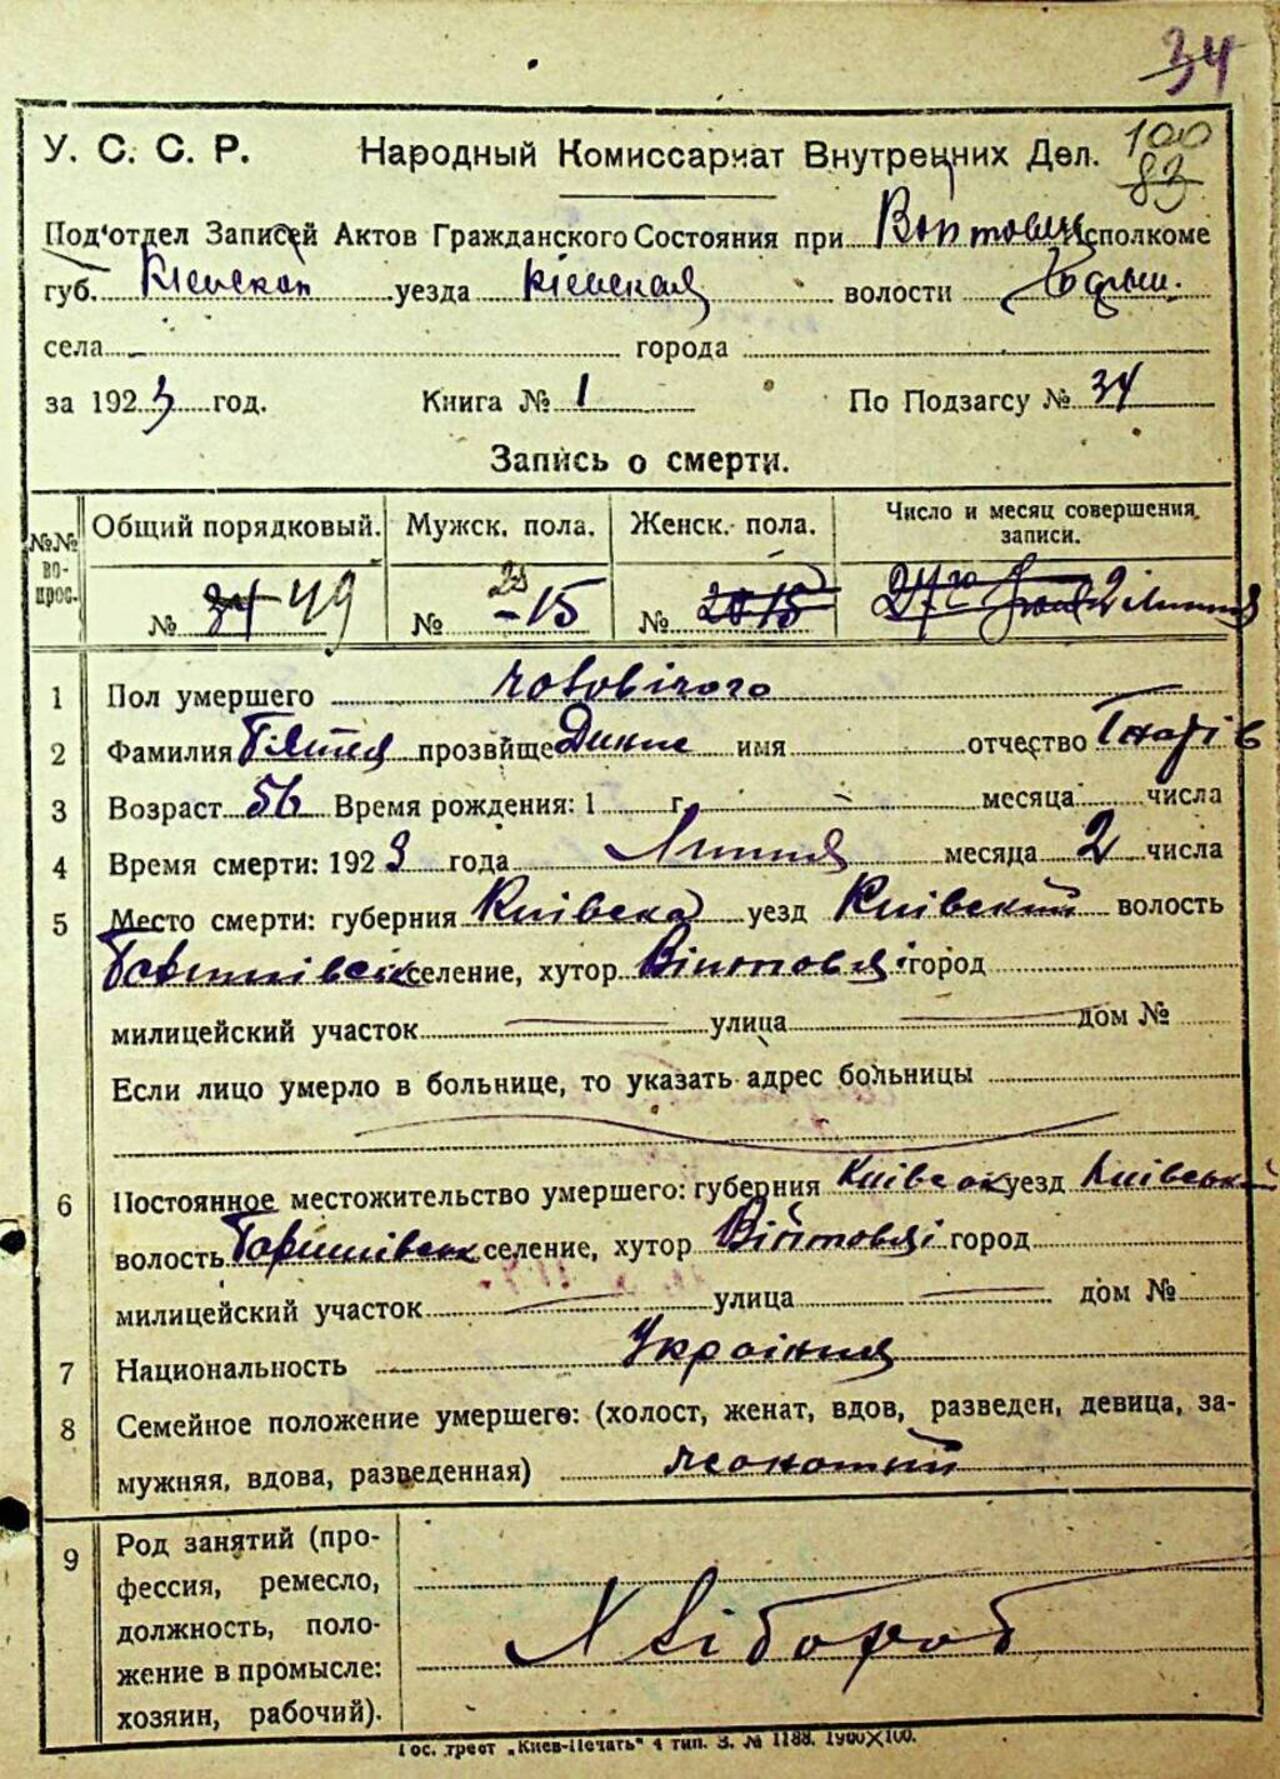 34
У. С. С. Р. Народный Комиссариат Внутренних Дел. 100
83
Под'отдел Записей Актов Гражданского Состояния при Исполкоме
губ. Кіевская уезда Кіевская волости
села города
за 1923 год. Книга № 1 По Подзагсу № 34
Запись о смерти.
№№ вопрос. Общий порядковый. Мужск. пола. Женск. пола. Число и месяц совершения записи.
№ 34 49 № 15 № 2 Липня
1 Пол умершего чоловічого
2 Фамилия прозвище имя отчество
3 Возраст 56 Время рождения: 1 г. месяца числа
4 Время смерти: 1923 года Липня месяца 2 числа
5 Место смерти: губерния Київска уезд Київский волость
селение, хутор Війтовці город
милицейский участок улица дом №
Если лицо умерло в больнице, то указать адрес больницы
6 Постоянное местожительство умершего: губерния уезд Київський
волость селение, хутор Війтовці город
милицейский участок улица дом №
7 Национальность
8 Семейное положение умершего: (холост, женат, вдов, разведен, девица, за-
мужняя, вдова, разведенная) жонатий
9 Род занятий (про-
фессия, ремесло,
должность, поло-
жение в промысле:
хозяин, рабочий).
Хлібороб
Гос. трест „Киев-Печать" 4 тип. З. № 1188. 1900X100.